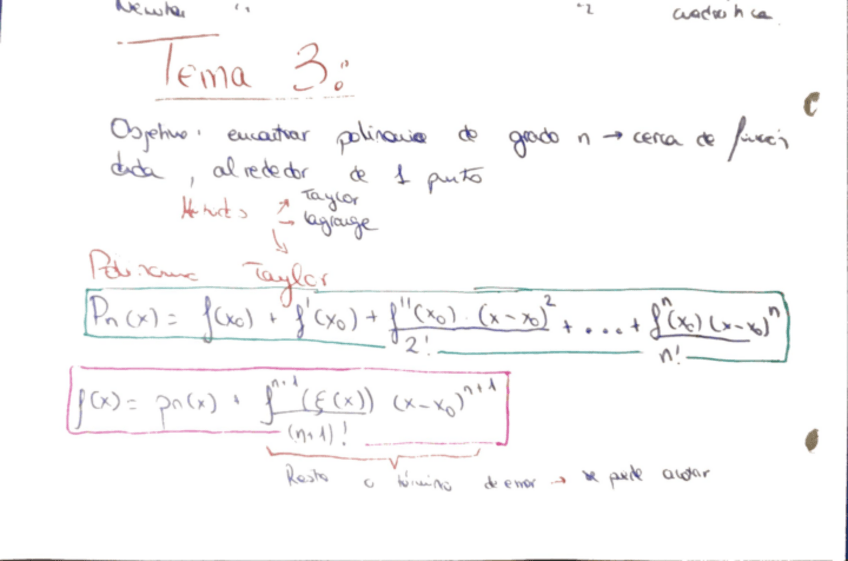 Newton 11 -2 cuadrática
Tema 3:
Objetivo: encontrar polinomio de grado n → cerca de función
dada, alrededor de 1 punto
↗ Taylor
→ Lagrange
↘
Polinomio Taylor
Pn(x) = f(x0) + f'(x0) + f''(x0) · (x-x0)^2 / 2! + ... + f^n(x0)(x-x0)^n / n!
f(x) = pn(x) + f^n+1 (ξ(x)) / (n+1)! (x-x0)^n+1
Resto o término de error → se puede acotar